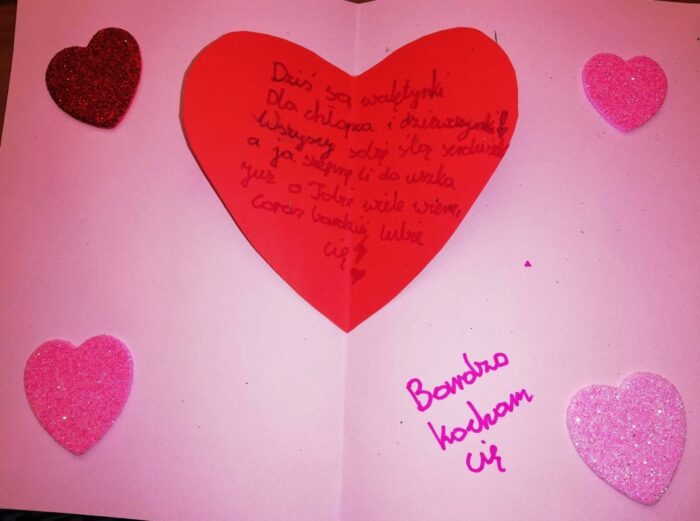 Dziś są walętynki
Dla chłopca i dziewczynki
Wszyscy sobię ślą serduszka
a ja szepnę Ci do uszka
już o Tobie wiele wiem,
Coraz bardziej lubie
cię!
Bardzo
kocham
cię